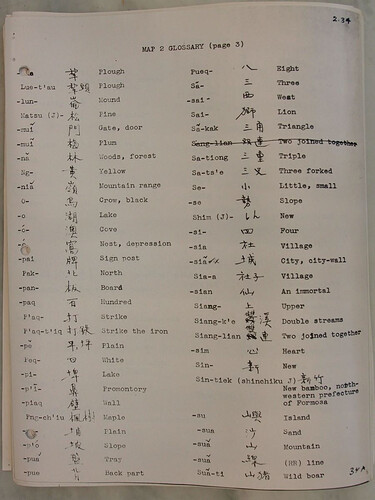 2.34
MAP 2 GLOSSARY (page 3)
犂 Plough
Lue-t'au 犂頭 Plough
-lun- 崙 Mound
Matsu (J)- 松 Pine
-mui 門 Gate, door
-mui 梅 Plum
-nã 林 Woods, forest
Ng- 黃 Yellow
-niã 嶺 Mountain range
O- 烏 Crow, black
-o 湖 Lake
-o 澳 Cove
-o 窩 Nest, depression
-pai 牌 Sign post
Pak- 北 North
-pan- 板 Board
-paq 百 Hundred
P'aq- 打 Strike
P'aq-t'iq 打鉄 Strike the iron
平,坪 Plain
Peq- 白 White
-pi- 埤 Lake
鼻 Promontory
-piaq 壁 Wall
Png-ch'iu 楓樹 Maple
埔 Plain
坡 Slope
-puã 盤 Tray
-pue 背 Back part
Pueq- 八 Eight
Sã- 三 Three
-sai- 西 West
-sai 獅 Lion
Sã-kak 三角 Triangle
Sang-lian 双連 Two joined together
Sa-tiong 三重 Triple
Sa-ts'e 三叉 Three forked
Se- 小 Little, small
-se 勢 Slope
Shim (J)- しん New
-si- 四 Four
-sia 社 Village
-siã 城 City, city-wall
Sia-a 社子 Village
-sian 仙 An immortal
Siang- 上 Upper
Siang-k'e 雙溪 Double streams
Siang-lian 雙連 Two joined together
-sim 心 Heart
Sin- 新 New
Sin-tiek (shinchiku J) 新竹 New bamboo, north-
western prefecture
of Formosa
-su 山嶼 Island
-sua 沙 Sand
-suã 山 Mountain
-suã 線 (RR) line
Suã-ti 山豬 Wild boar